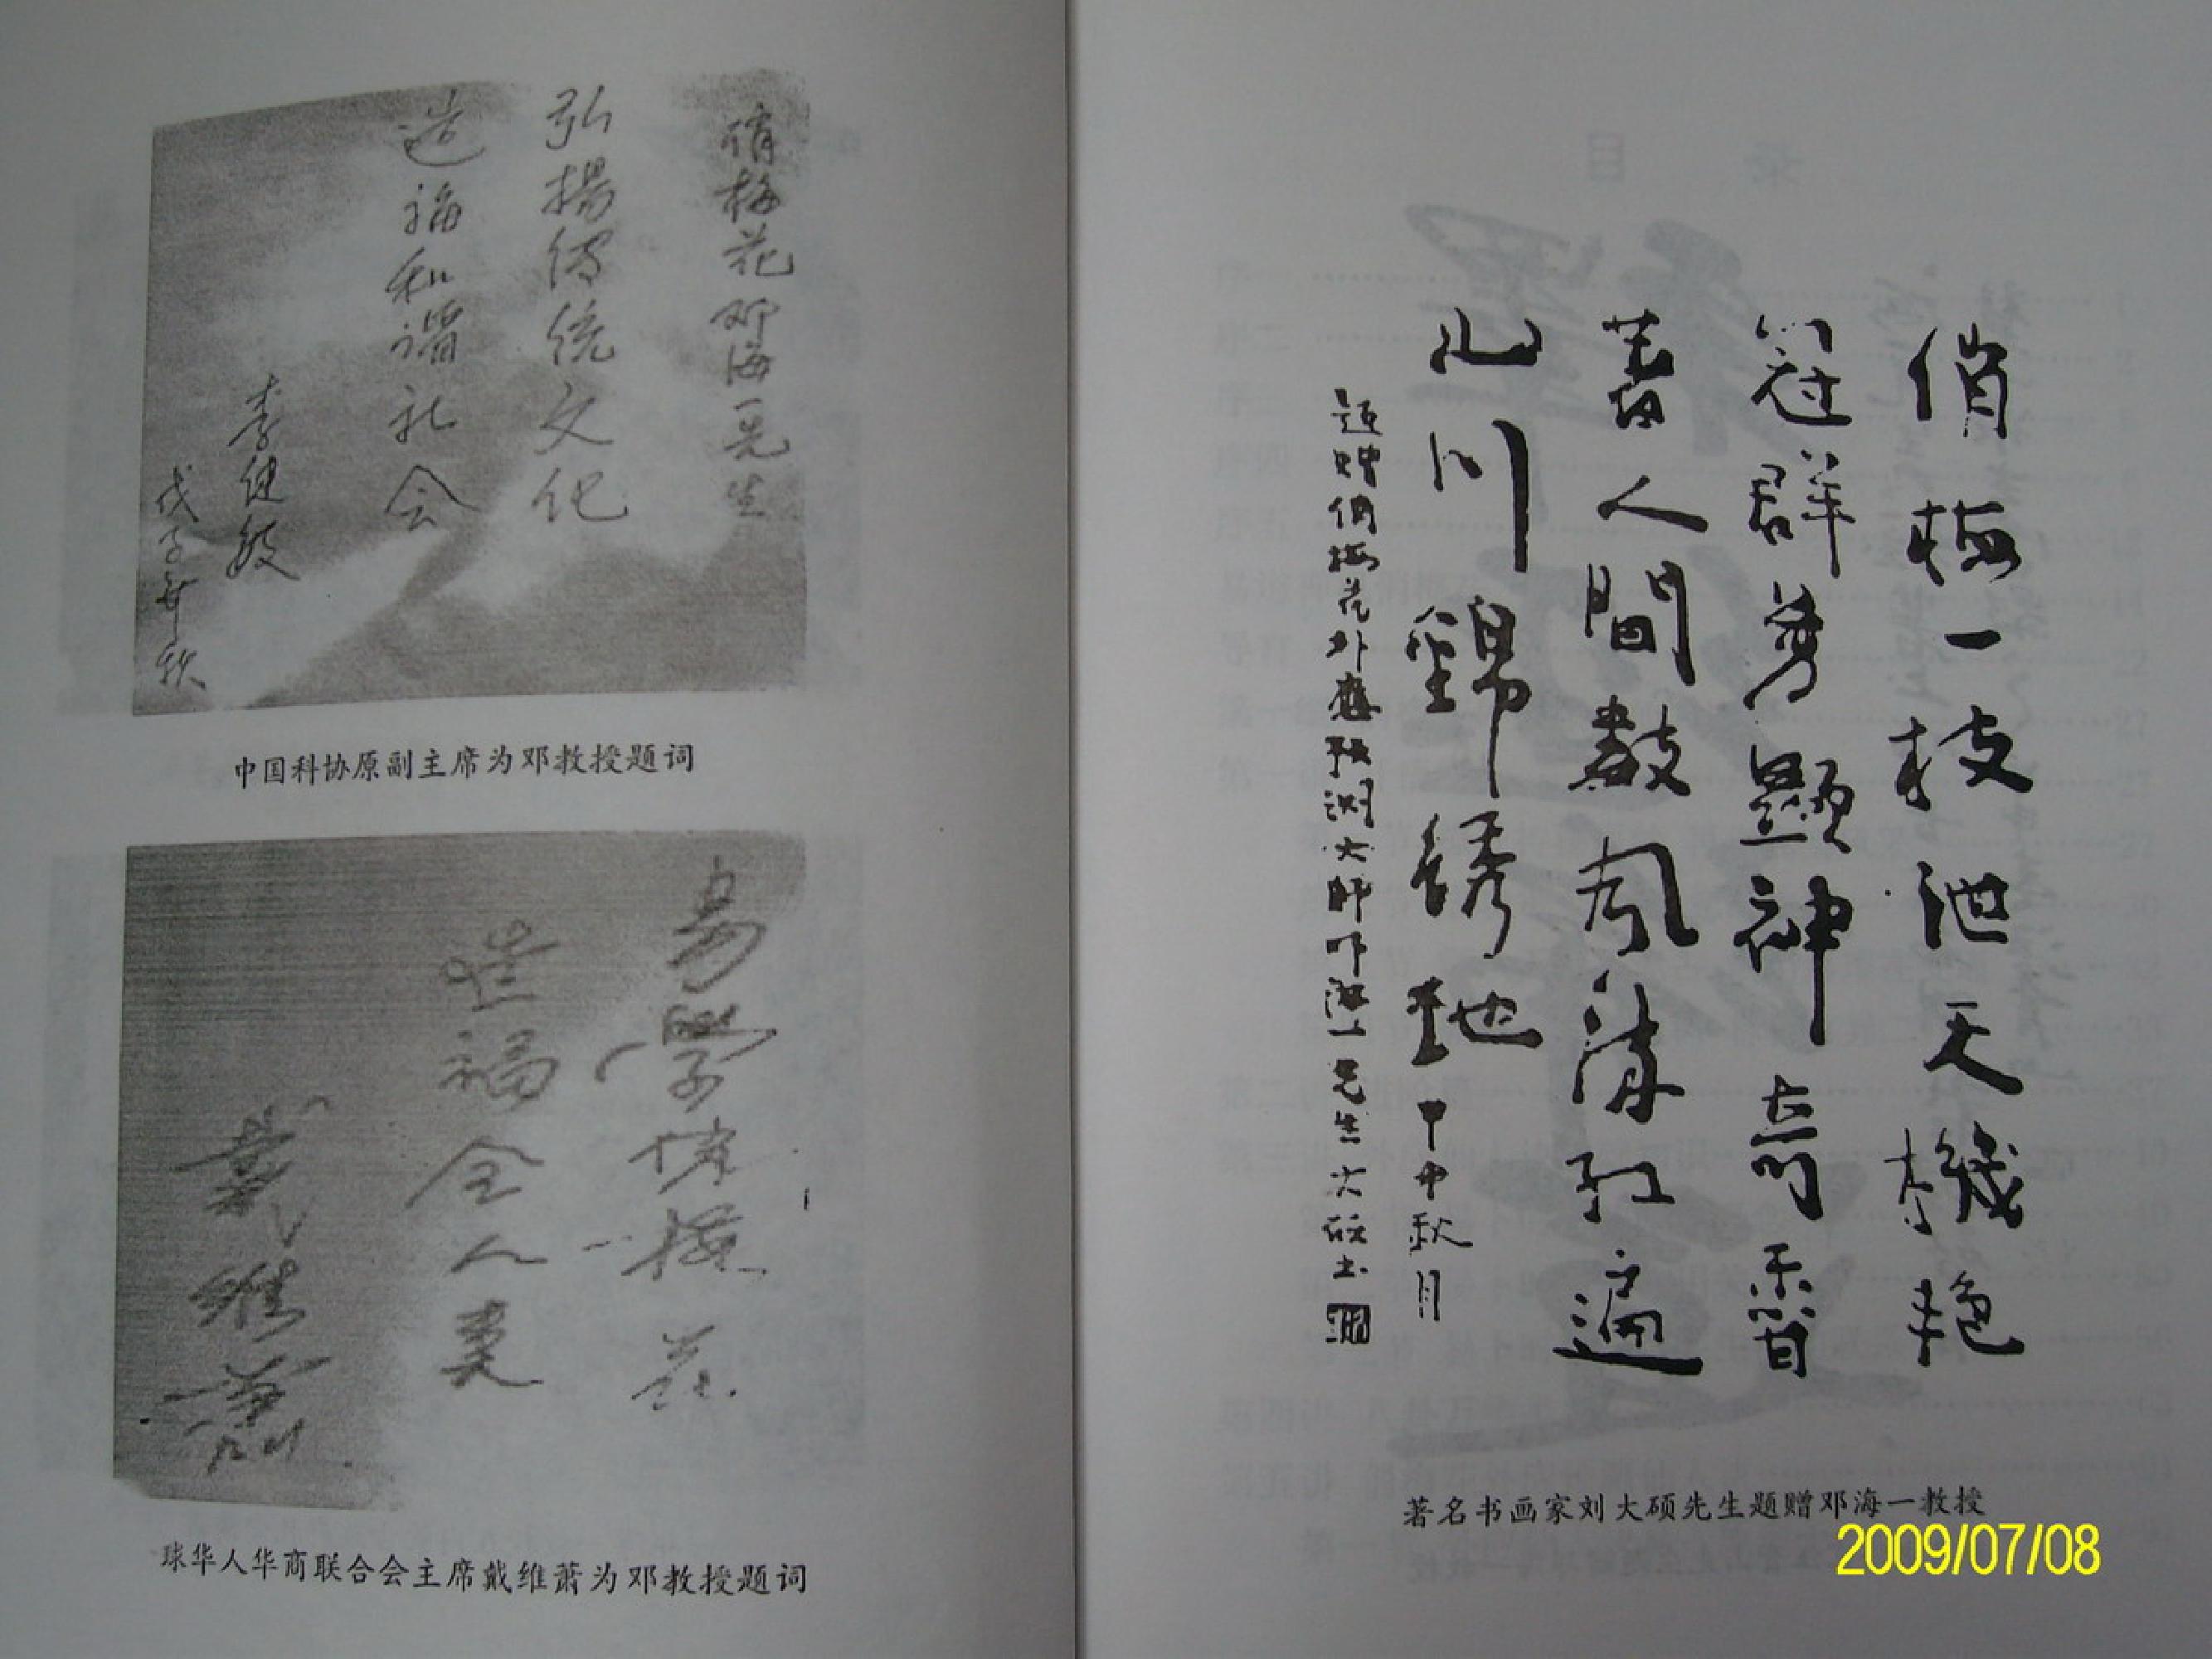 俏梅花邓海一先生
弘揚傳統文化
造福和谐社会
李健敏
戊子年秋
中国科协原副主席为邓教授题词
易學俏梅花
造福全人类
戴维萧
球华人华商联合会主席戴维萧为邓教授题词
俏梅一枝泄天機艳
冠群芳顯神奇香
蓄人間數风流红遍
山川錦绣地
甲申秋月
题赠俏梅花外應预测大师邓海一先生大硕书
著名书画家刘大硕先生题赠邓海一教授
2009/07/08